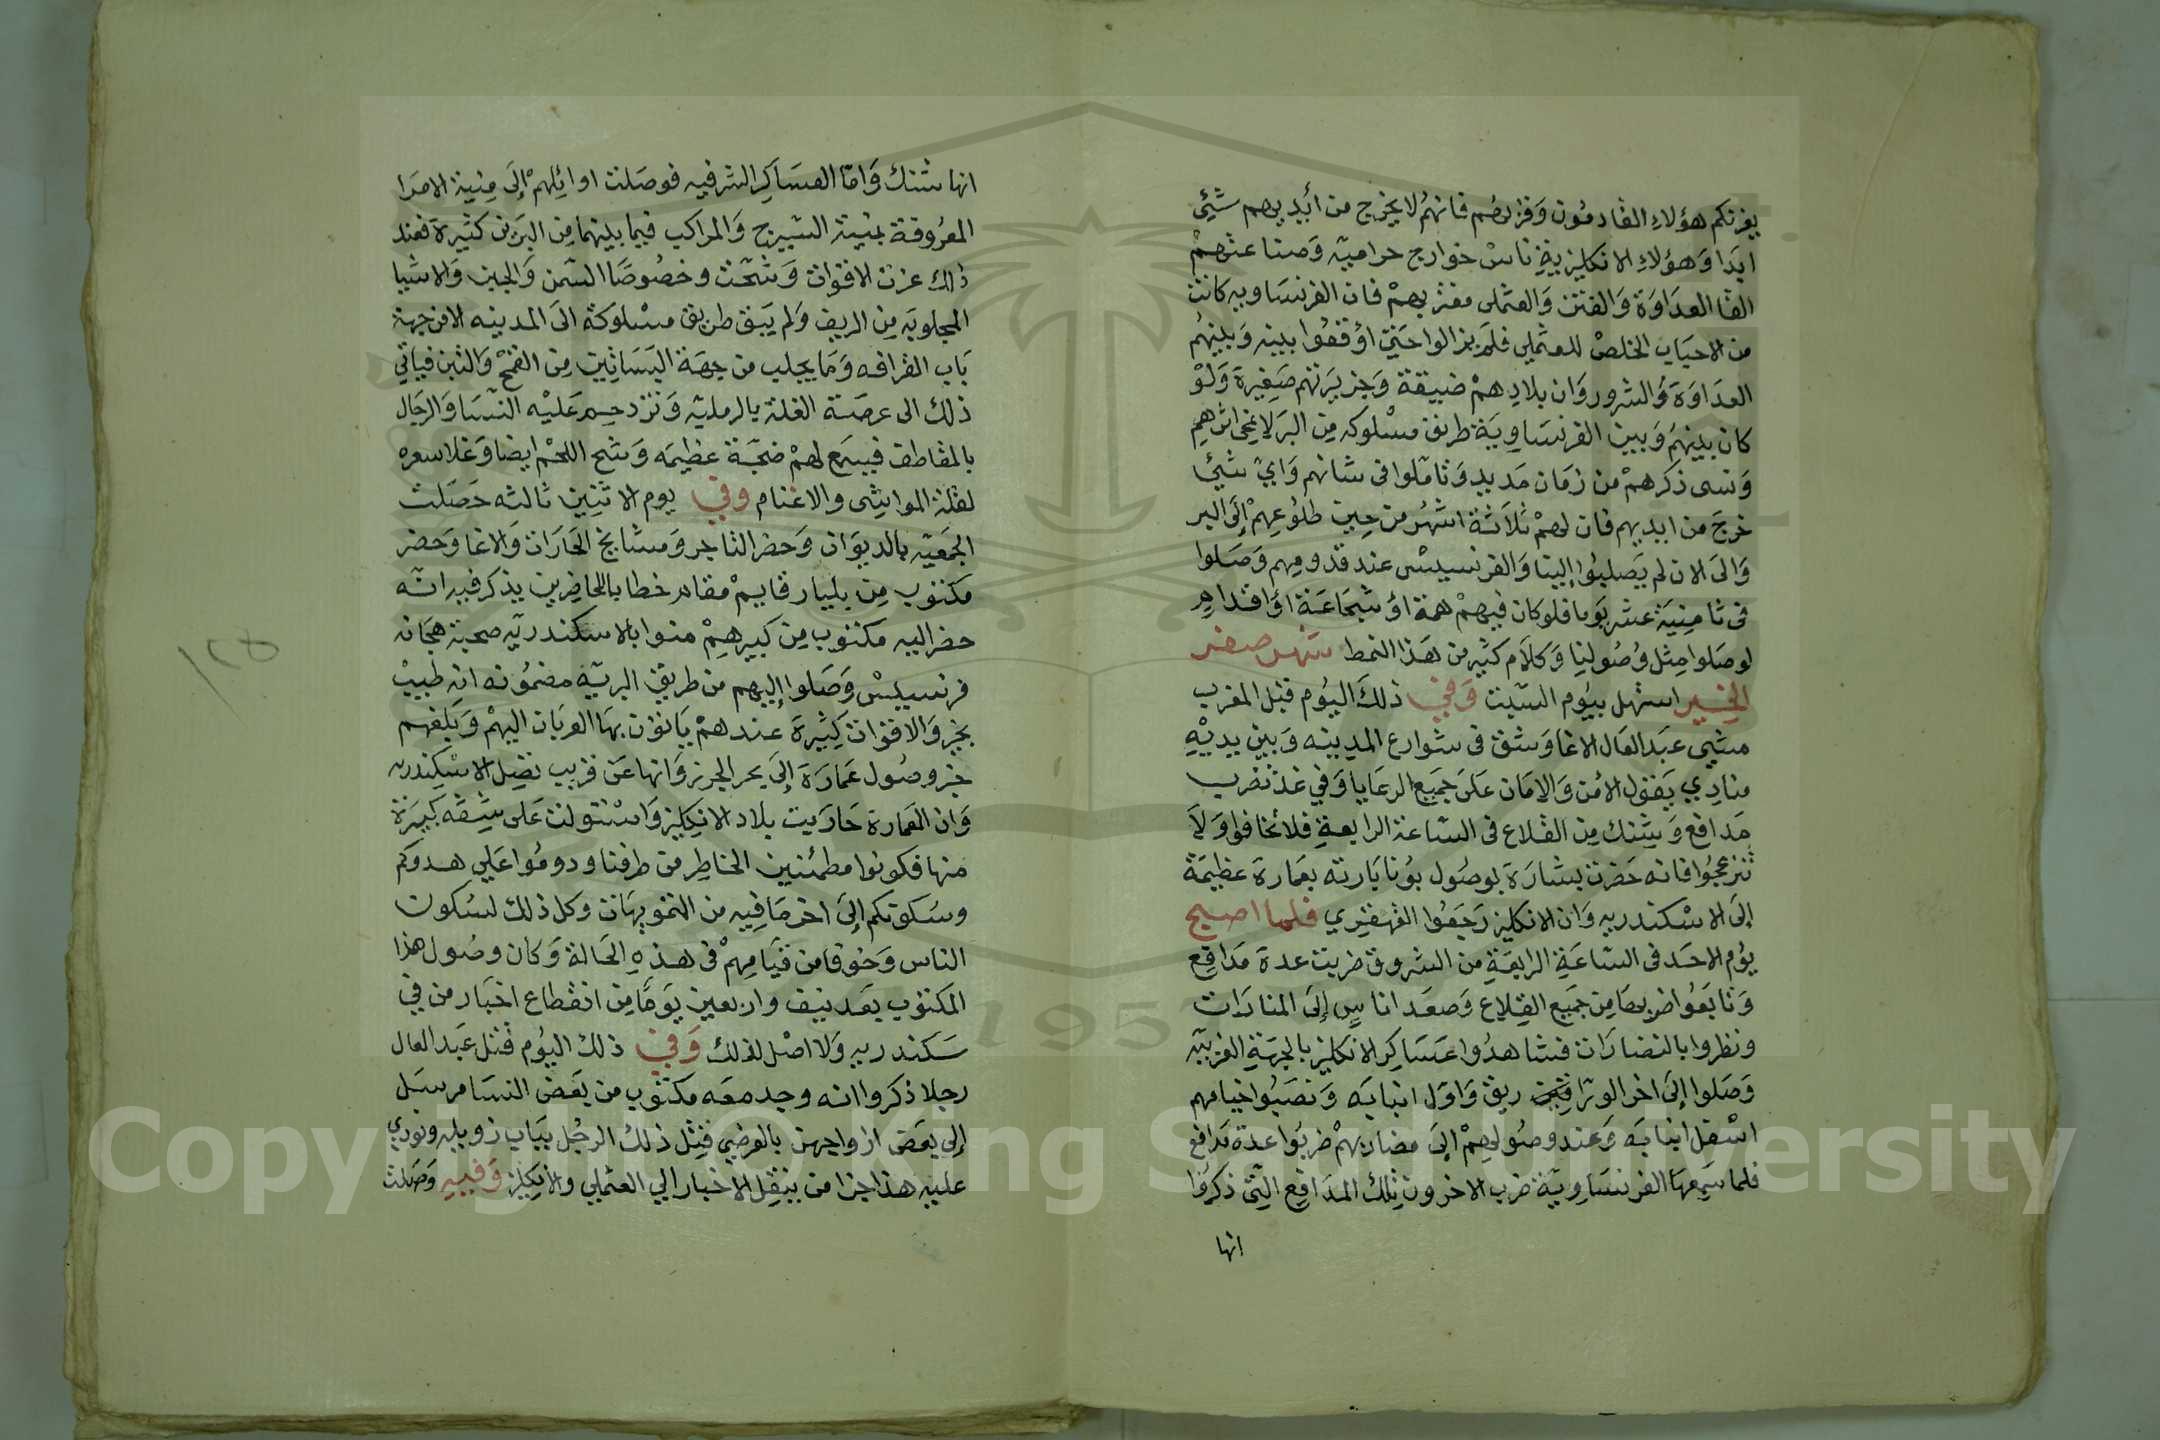 يغرنكم هؤلاء القادمون وقربهم فانهم لا يخرج من أيديهم شيئ
ابدا وهؤلاء الانكليزية ناس خوارج حرامية وصناعتهم
القا العداوة والفتن والعثملى مغتر بهم فان الفرنساويه كانت
من الاحباب الخلص للعثملي فلم يزالوا حتي اوقعوا بينه وبينهم
العداوة والشرور وان بلادهم ضيقة وجزيرتهم صغيرة ولو
كان بينهم وبين الفرنساوية طريق مسلوكه من البر لانمحى اثرهم
ونسى ذكرهم من زمان مديد وتاملوا فى شانهم واي شيئ
خرج من ايديهم فان لهم ثلاثة اشهر من حين طلوعهم إلى البر
والى الان لم يصلوا إلينا والفرنسيس عند قدومهم وصلوا
فى ثامنية عشر يوما فلو كان فيهم همة او شجاعة او اقدام
لوصلوا مثل وصولنا وكلام كثير من هذا النمط شهر صفر
الخير استهل بيوم السبت وفي ذلك اليوم قبل المغرب
مشي عبد العال الاغا وشق فى شوارع المدينه وبين يديه
منادي يقول الأمن والامان على جميع الرعايا وفي غد تضرب
مدافع وشنك من القلاع فى الساعة الرابعة فلا تخافوا ولا
تنزعجوا فانه حضرت بشارة بوصول بونابارته بعمارة عظيمة
إلى الاسكندريه وان الانكليز رجعوا القهقري فلما اصبح
يوم الاحد فى الساعة الرابعة من الشروق ضربت عدة مدافع
وتابعوا ضربها من جميع القلاع وصعد اناس إلى المنارات
ونظروا بالنضارات فشاهدوا عساكر الانكليز بالجهة الغربيه
وصلوا إلى اخر الوراق ريق واول انبابه ونصبوا خيامهم
اسفل انبابه وعند وصولهم إلى مضاربهم ضربوا عدة مدافع
فلما سمعها الفرنساوية ضرب الاخرون تلك المدافع التى ذكروا
انها
انها شنك واما العساكر الشرقيه فوصلت اوائلهم إلى منية الامرا
المعروفة بمنية السيرج والمراكب فيما بينهما من البرين كثيرة فعند
ذلك عزت الاقوات وشحت وخصوصا السمن والجبن والاشيا
المجلوبه من الريف ولم يبق طريق مسلوكة الى المدينه الا من جهة
باب القرافه وما يجلب من جهة البساتين من القمح والتبن فياتي
ذلك الى عرصة الغلة بالرميله وتزدحم عليه النسا والرجال
بالمقاطف فيسمع لهم ضجة عظيمه وشح اللحم ايضا وغلا سعره
لقلة المواشى والاغنام وفي يوم الاثنين ثالثه حصلت
الجمعيه بالديوان وحضر التاجر ومشايخ الحارات والاغا وحضر
مكتوب من بليار قايم مقام خطابا للحاضرين يذكر فيه انه
حضر اليه مكتوب من كبيرهم منوا بالاسكندريه صحبة هجانه
فرنسيس وصلوا إليهم من طريق البريه مضمونه انه طيب
بخير والاقوات كثيرة عندهم ياتون بها العربان اليهم وبلغهم
خبر وصول عمارة إلى بحر الخرز وانها عن قريب تصل الاسكندريه
وان العمارة حاربت بلاد الانكليز واستولت على شقه كبيرة
منها فكونوا مطمئنين الخاطر من طرفنا ودوموا علي هدوكم
وسكوتكم إلى اخر ما فيه من التمويهات وكل ذلك لسكون
الناس وخوفا من قيامهم فى هذه الحالة وكان وصول هذا
المكتوب بعد نيف واربعين يوما من انقطاع اخبار من في
سكندريه ولا اصل لذلك وفي ذلك اليوم قتل عبد العال
رجلا ذكروا انه وجد معه مكتوب من بعض النسا مرسل
إلى بعض ازواجهن بالعرضي قتل ذلك الرجل بباب زويله ونودي
عليه هذا جزا من ينقل الاخبار الي العثملي والانكليز وفيه وصلت
١٢٥
Copyright © King Saud University
1957